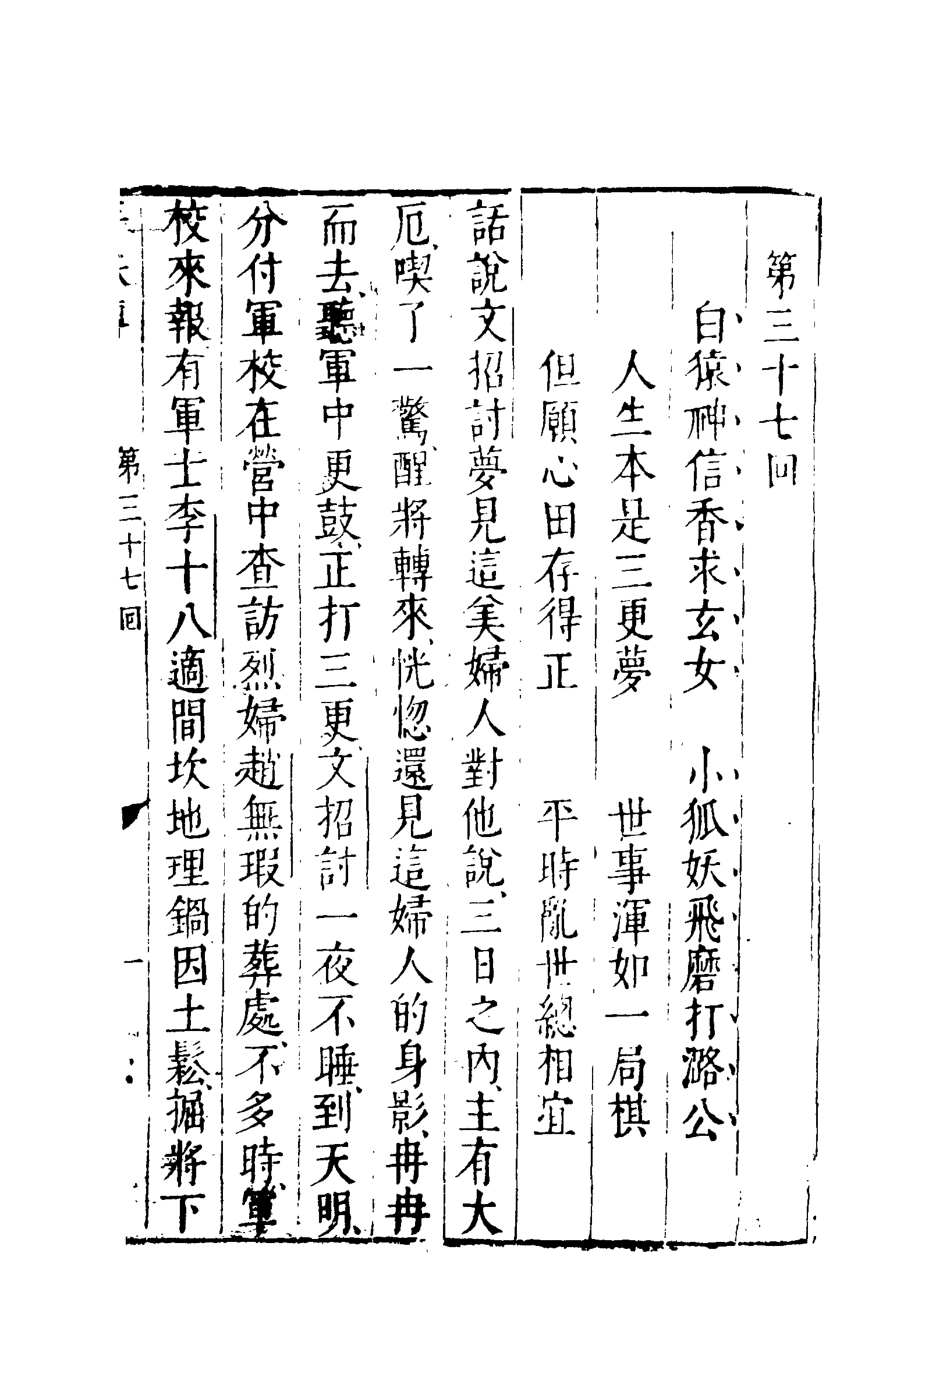 第三十七回
白猿神信香求玄女　小狐妖飛磨打潞公
人生本是三更夢　世事渾如一局棋
但願心田存得正　平時亂世總相宜
話說文招討夢見這美婦人對他說、三日之內、主有大
厄、喫了一驚、醒將轉來、恍惚還見這婦人的身影、冉冉
而去、聽軍中更鼓、正打三更、文招討一夜不睡、到天明、
分付軍校在營中查訪烈婦趙無瑕的葬處、不多時、軍
校來報有軍士李十八適間坎地理鍋因土鬆、掘將下
第三十七回
一